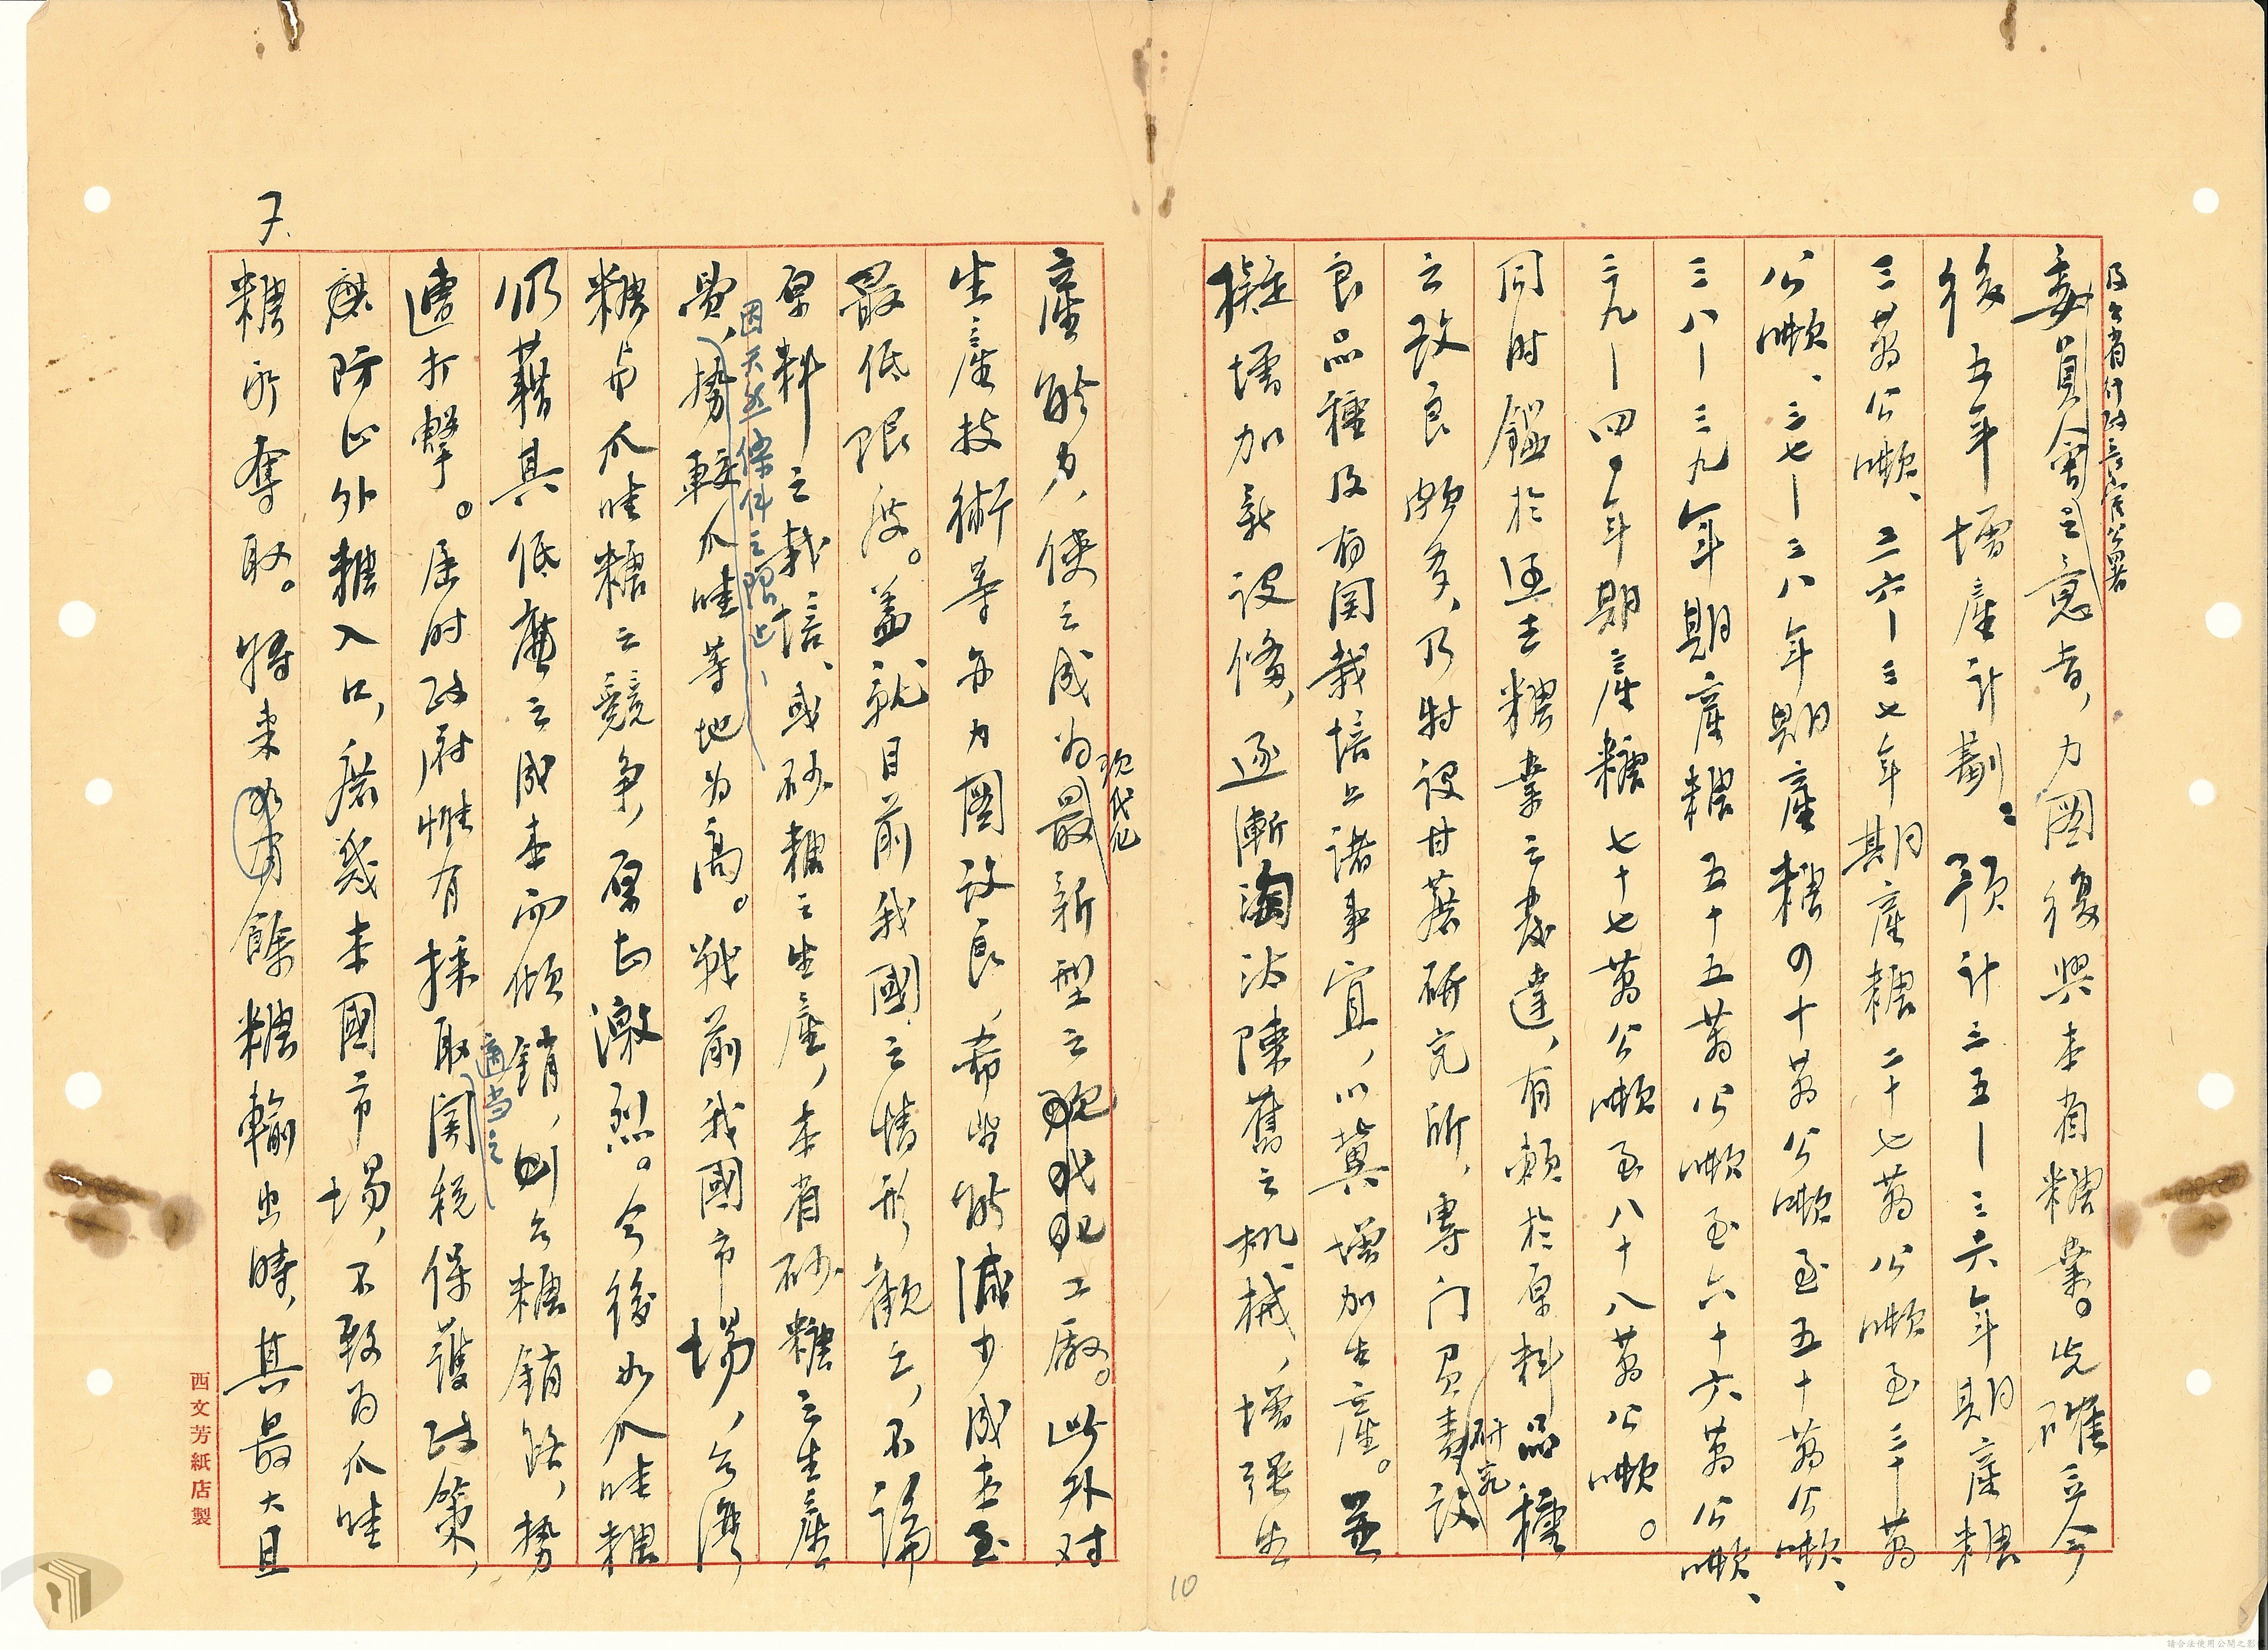 及台省行政長官公署
委員會之意旨，力圖復興本省糖業。先確立今
後五年增產計劃。預計三五—三六年期產糖
三萬公噸、三六—三七年期產糖二十七萬公噸至三十萬
公噸、三七—三八年期產糖四十萬公噸至五十萬公噸、
三八—三九年期產糖五十五萬公噸至六十六萬公噸、
三九—四〇年期產糖七十七萬公噸至八十八萬公噸。
同時鑑於過去糖業之發達，有賴於原料品種
之改良頗多，乃特設甘蔗研究所，專門負責設
研究
良品種及有関栽培上諸事宜，以冀增加生產。並
擬增加新設備，逐漸淘汰陳舊之机械，增强生
產能力，使之成為最新型之現代化工廠。此外对
現代化
生產技術等亦力圖改良，希望能減少成本至
最低限度。蓋就目前我國之情形觀之，不論
原料之栽培、或砂糖之生產，本省砂糖之生產
因天然條件之限止，
費，勢較爪哇等地為高。戰前我國市場，台灣
糖与爪哇糖之競爭，原甚激烈。今後如爪哇糖
仍藉其低廉之成本而傾銷，則台糖銷路，勢
遭打擊。屆時政府惟有採取関稅保護政策，
適当之
藉防止外糖入口，庶幾本國市場，不致為爪哇
糖所奪取。將來如有餘糖輸出時，其最大且
7.
10
西文芳紙店製
請合法使用公開之影